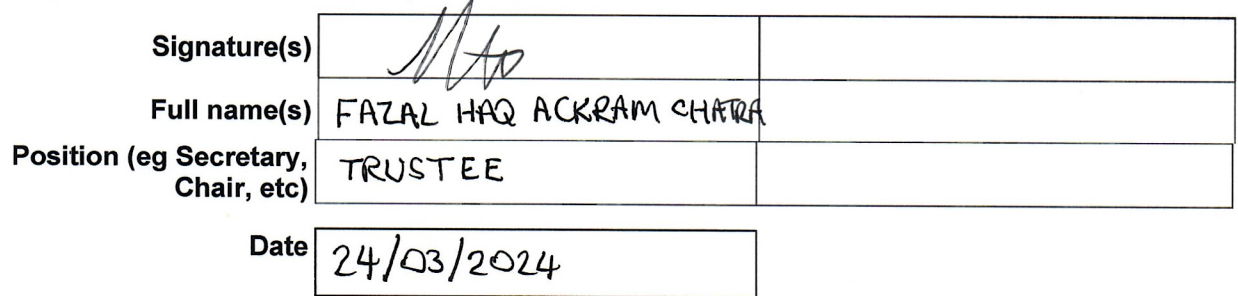 Signature(s)
Full name(s) FAZAL HAQ ACKRAM CHATRA
Position (eg Secretary,
Chair, etc) TRUSTEE
Date 24/03/2024